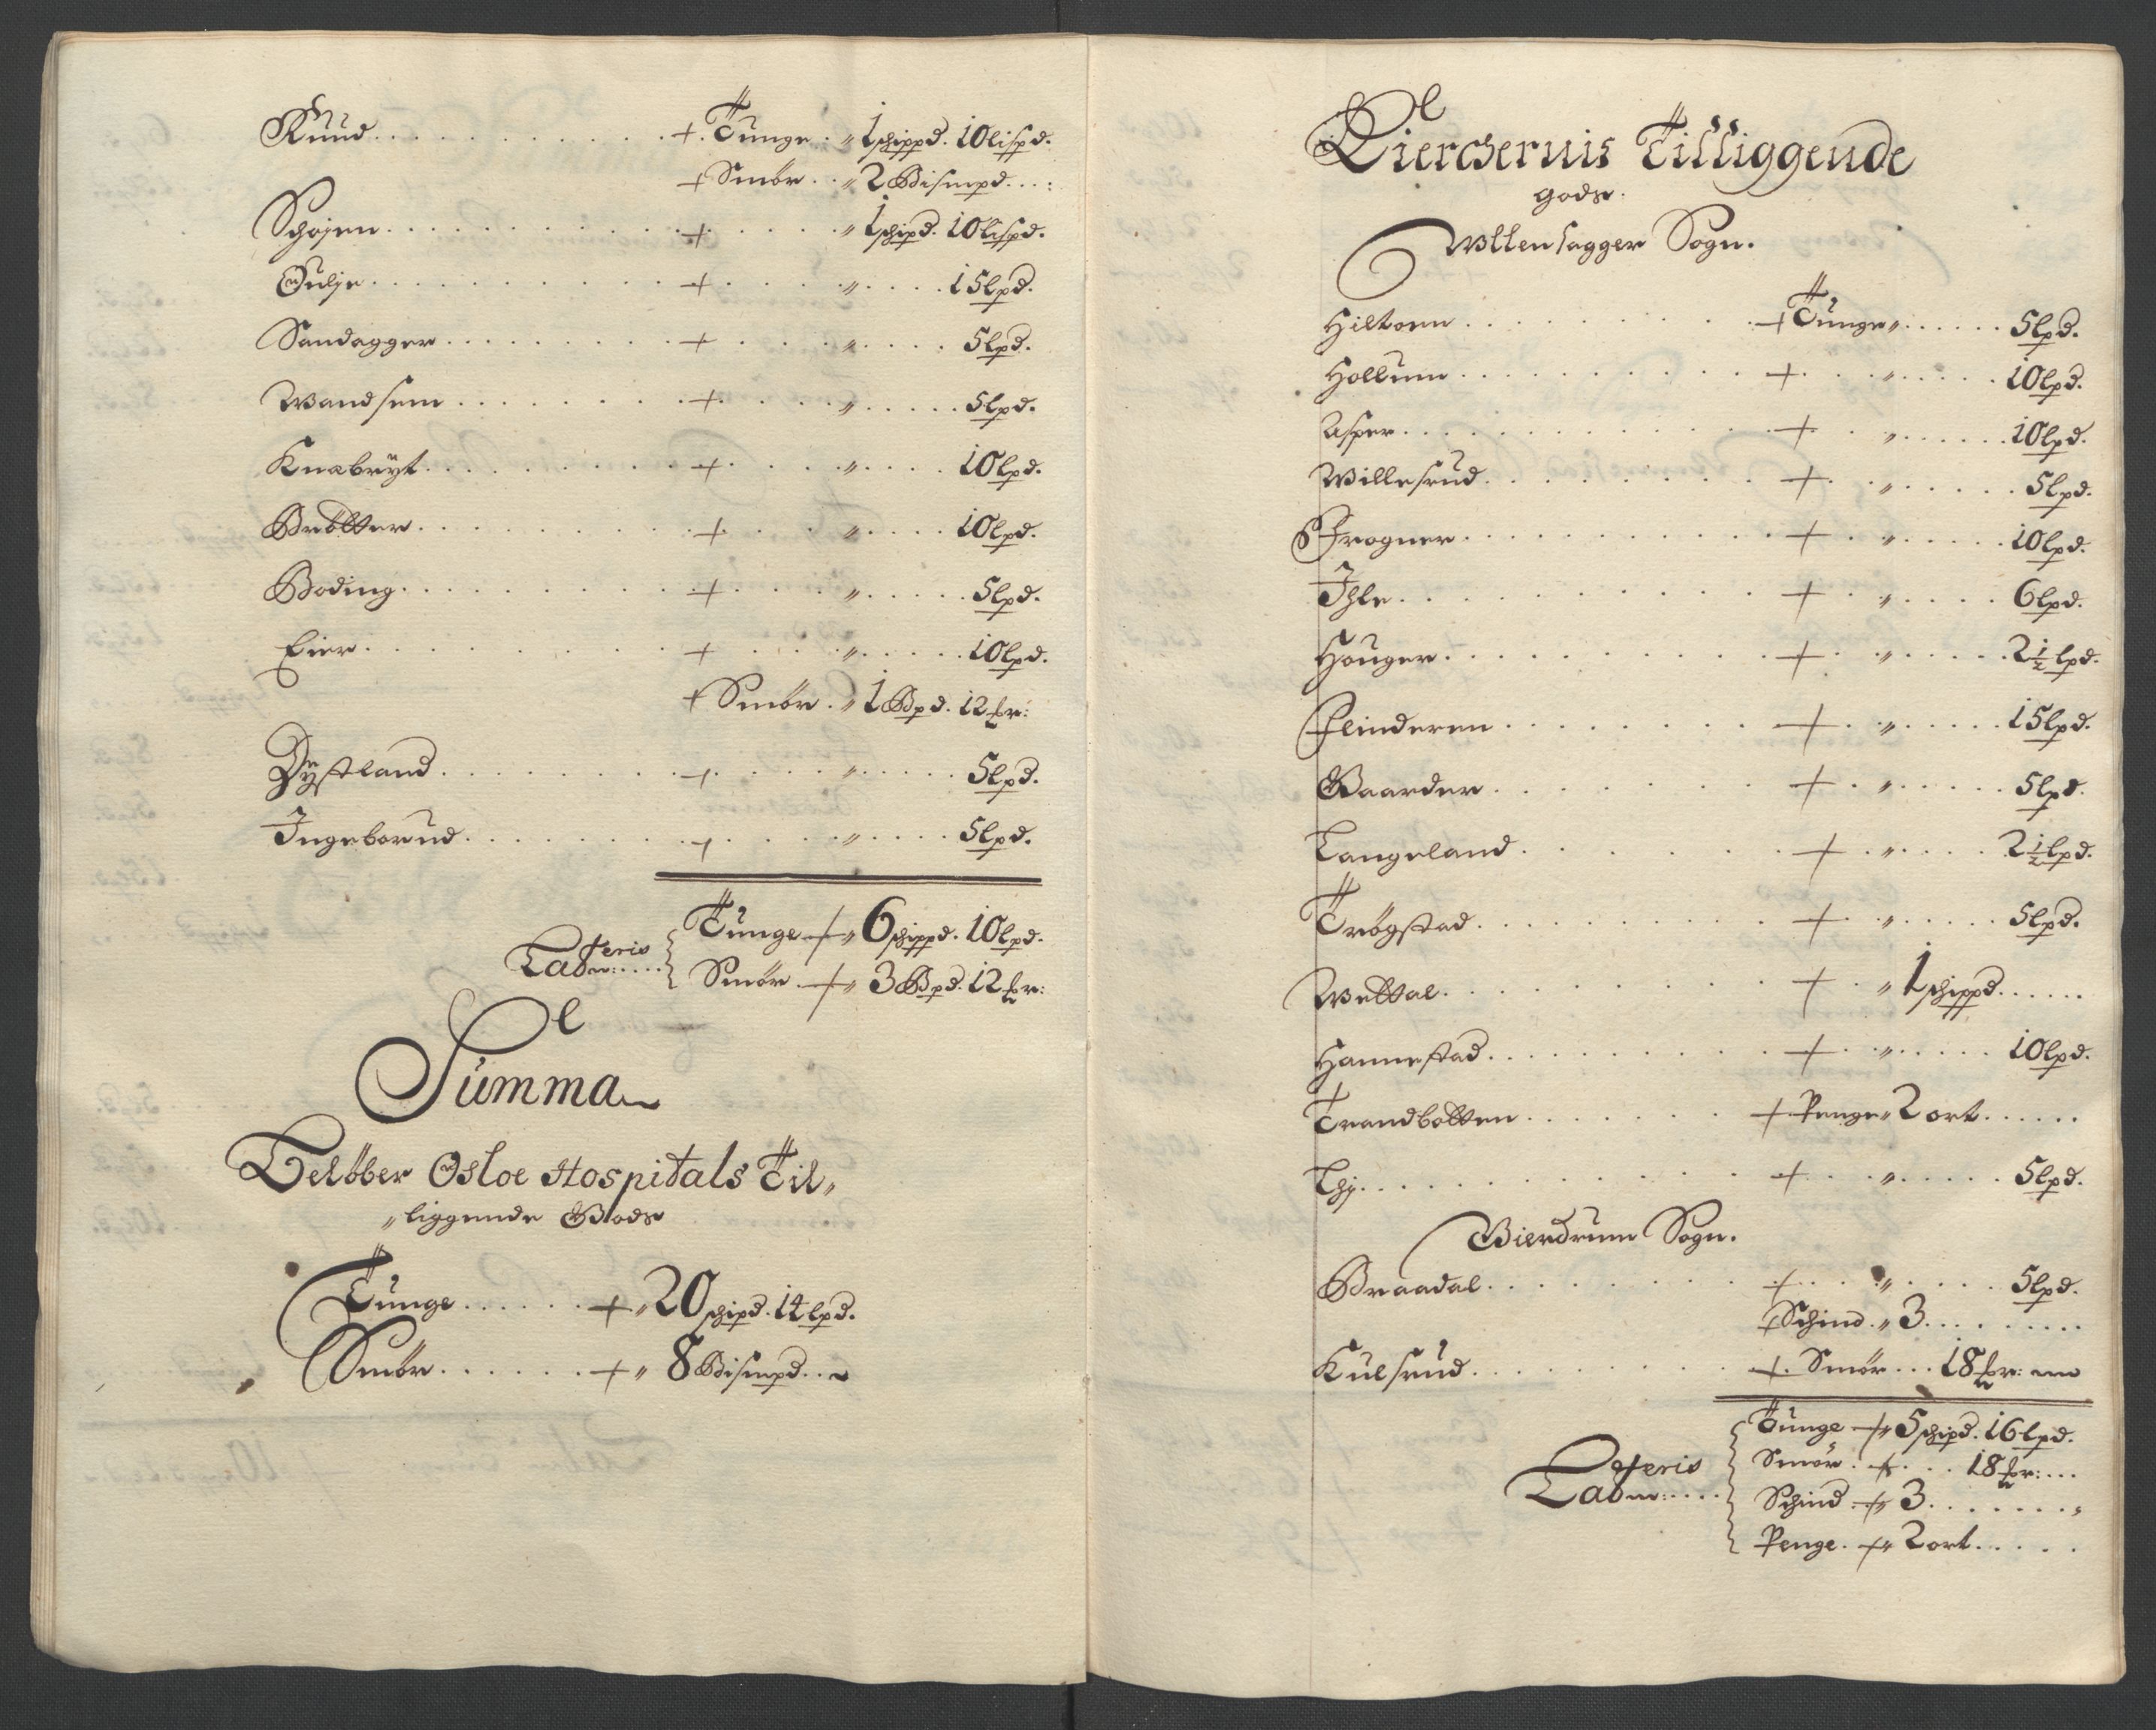 Ruud . . . + . Tunge . „ 1 schippd. 10 lispd.
+ Smör . . „ 2 Bismpd. . . :
Schøjen . . . + . . . „ 1 schipd. 10 lispd.
Gulje . . . + . . . „ . . . 15 lpd.
Sandagger . . . + . . . „ . . . 5 lpd.
Wandsem . . . + . . . „ . . . 5 lpd.
Knabryt . . . + . . . „ . . . 10 lpd.
Brötter . . . + . . . „ . . . 10 lpd.
Boding . . . + . . . „ . . . 5 lpd.
Eier . . . + . . . „ . . . 10 lpd.
+ Smör . „ 1 Bpd. 12 fr:
Dystland . . . + . . . „ . . . 5 lpd.
Ingeborud . . . + . . . „ . . . 5 lpd.
Lateris { Tunge + „ 6 schippd. 10 lpd.
Smör + „ 3 Bpd. 12 fr:
Summa
Belöber Osloe Hospitals Til„
„liggende Gods
Tunge . . . + „ 20 schipd. 14 lpd.
Smör . . . + „ 8 Bismpd. . .
Kierchernis Tilliggende
gods.
Wllensagger Sogn.
Hiltoen . . . + Tunge „ . . . 5 lpd.
Hollum . . . + . . „ . . . 10 lpd.
Asper . . . + . . „ . . . 10 lpd.
Willesrud . . . + . . „ . . . 5 lpd.
Frogner . . . + . . „ . . . 10 lpd.
Ihle . . . + . . „ . . . 6 lpd.
Houger . . . + . . „ . . . 2 1/2 lpd.
Flinderen . . . + . . „ . . . 15 lpd.
Gaarder . . . + . . „ . . . 5 lpd.
Langeland . . . + . . „ . . . 2 1/2 lpd.
Trögstad . . . + . . „ . . . 5 lpd.
Wettal . . . + . . „ 1 schippd. . . .
Hannestad . . . + . . „ . . . 10 lpd.
Trandbötten . . . + Penge „ 2 ort . . .
Lhj . . . + . . „ . . . 5 lpd.
Bierdrum Sogn.
Braadal . . . + . . „ . . . 5 lpd.
+ Schind . „ 3 . . .
Kulsrud . . . + . Smör . . . 18 fr:
Lateris { Tunge + „ 5 schipd. 16 lpd.
Smör . + . . . 18 fr: . . .
Schind . + „ 3 . . .
Penge . + „ 2 ort . . .